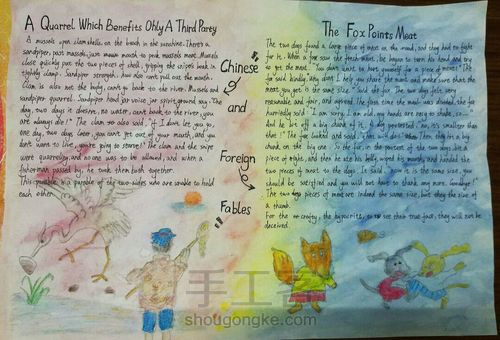 A Quarrel Which Benefits Only A Third Party
A mussels open clamshells, on the beach in the sunshine. There's a
sandpiper, past mussels, just mouth to peck mussels meat. Mussels
close quickly put the two pieces of shell, gripping the snipe's beak in
tightly clamp. Sandpiper strength, how also can't pull out the mouth.
Clam is also not the body, can't go back to the river. Mussels and
sandpiper quarrel. Sandpiper said: "One
day, two days it doesn't rain, no water, can't back to the river, you
are always die!" The clam also said, "if I don't let you go,
one day, two days later, you can't get out of your mouth, and you
don't want to live, you're going to starve!" The clam and the snipe
were quarrelling, and no one was to be allowed, and when a
fisherman passed by, he took them both together.
This parable is a parable of the two sides who are unable to hold
each other.
Chinese
and
Foreign
Fables
The Fox Points Meat
The two dogs found a large piece of meat on the road, and they had to fight
for it. When a fox saw the fresh meat, he began to turn his hand and try
to get the meat. "You don't want to hurt yourself for a piece of meat!" The
fox said kindly, "Why don't I help you share the meat and make sure that the
meat you get is the same size." Said the fox. The two dogs felt very
reasonable and fair, and agreed. The first time the meat was divided, the fox
hurriedly said: "I am sorry. I am old, my hands are easy to shake, so
and he bit off a big chunk of it. A dog protested: "no, it's smaller than
that!" The fox looked and said, "That will do!" When then, there is a big
chunk on the big one. So the fox, in the portent of the two dogs bit a
piece of right, and then he ate his belly, wiped his mouth, and handed the
two pieces of meat to the dogs. It said, now it is the same size, you
should be satisfied and you will not have to thank any more. Goodbye!"
The two dogs pieces of meat are indeed the same size, but they the size of
a thumb.
For the crafty, the hypocrite, to see their true face, they will not be
deceived.
手工客
shougongke.com